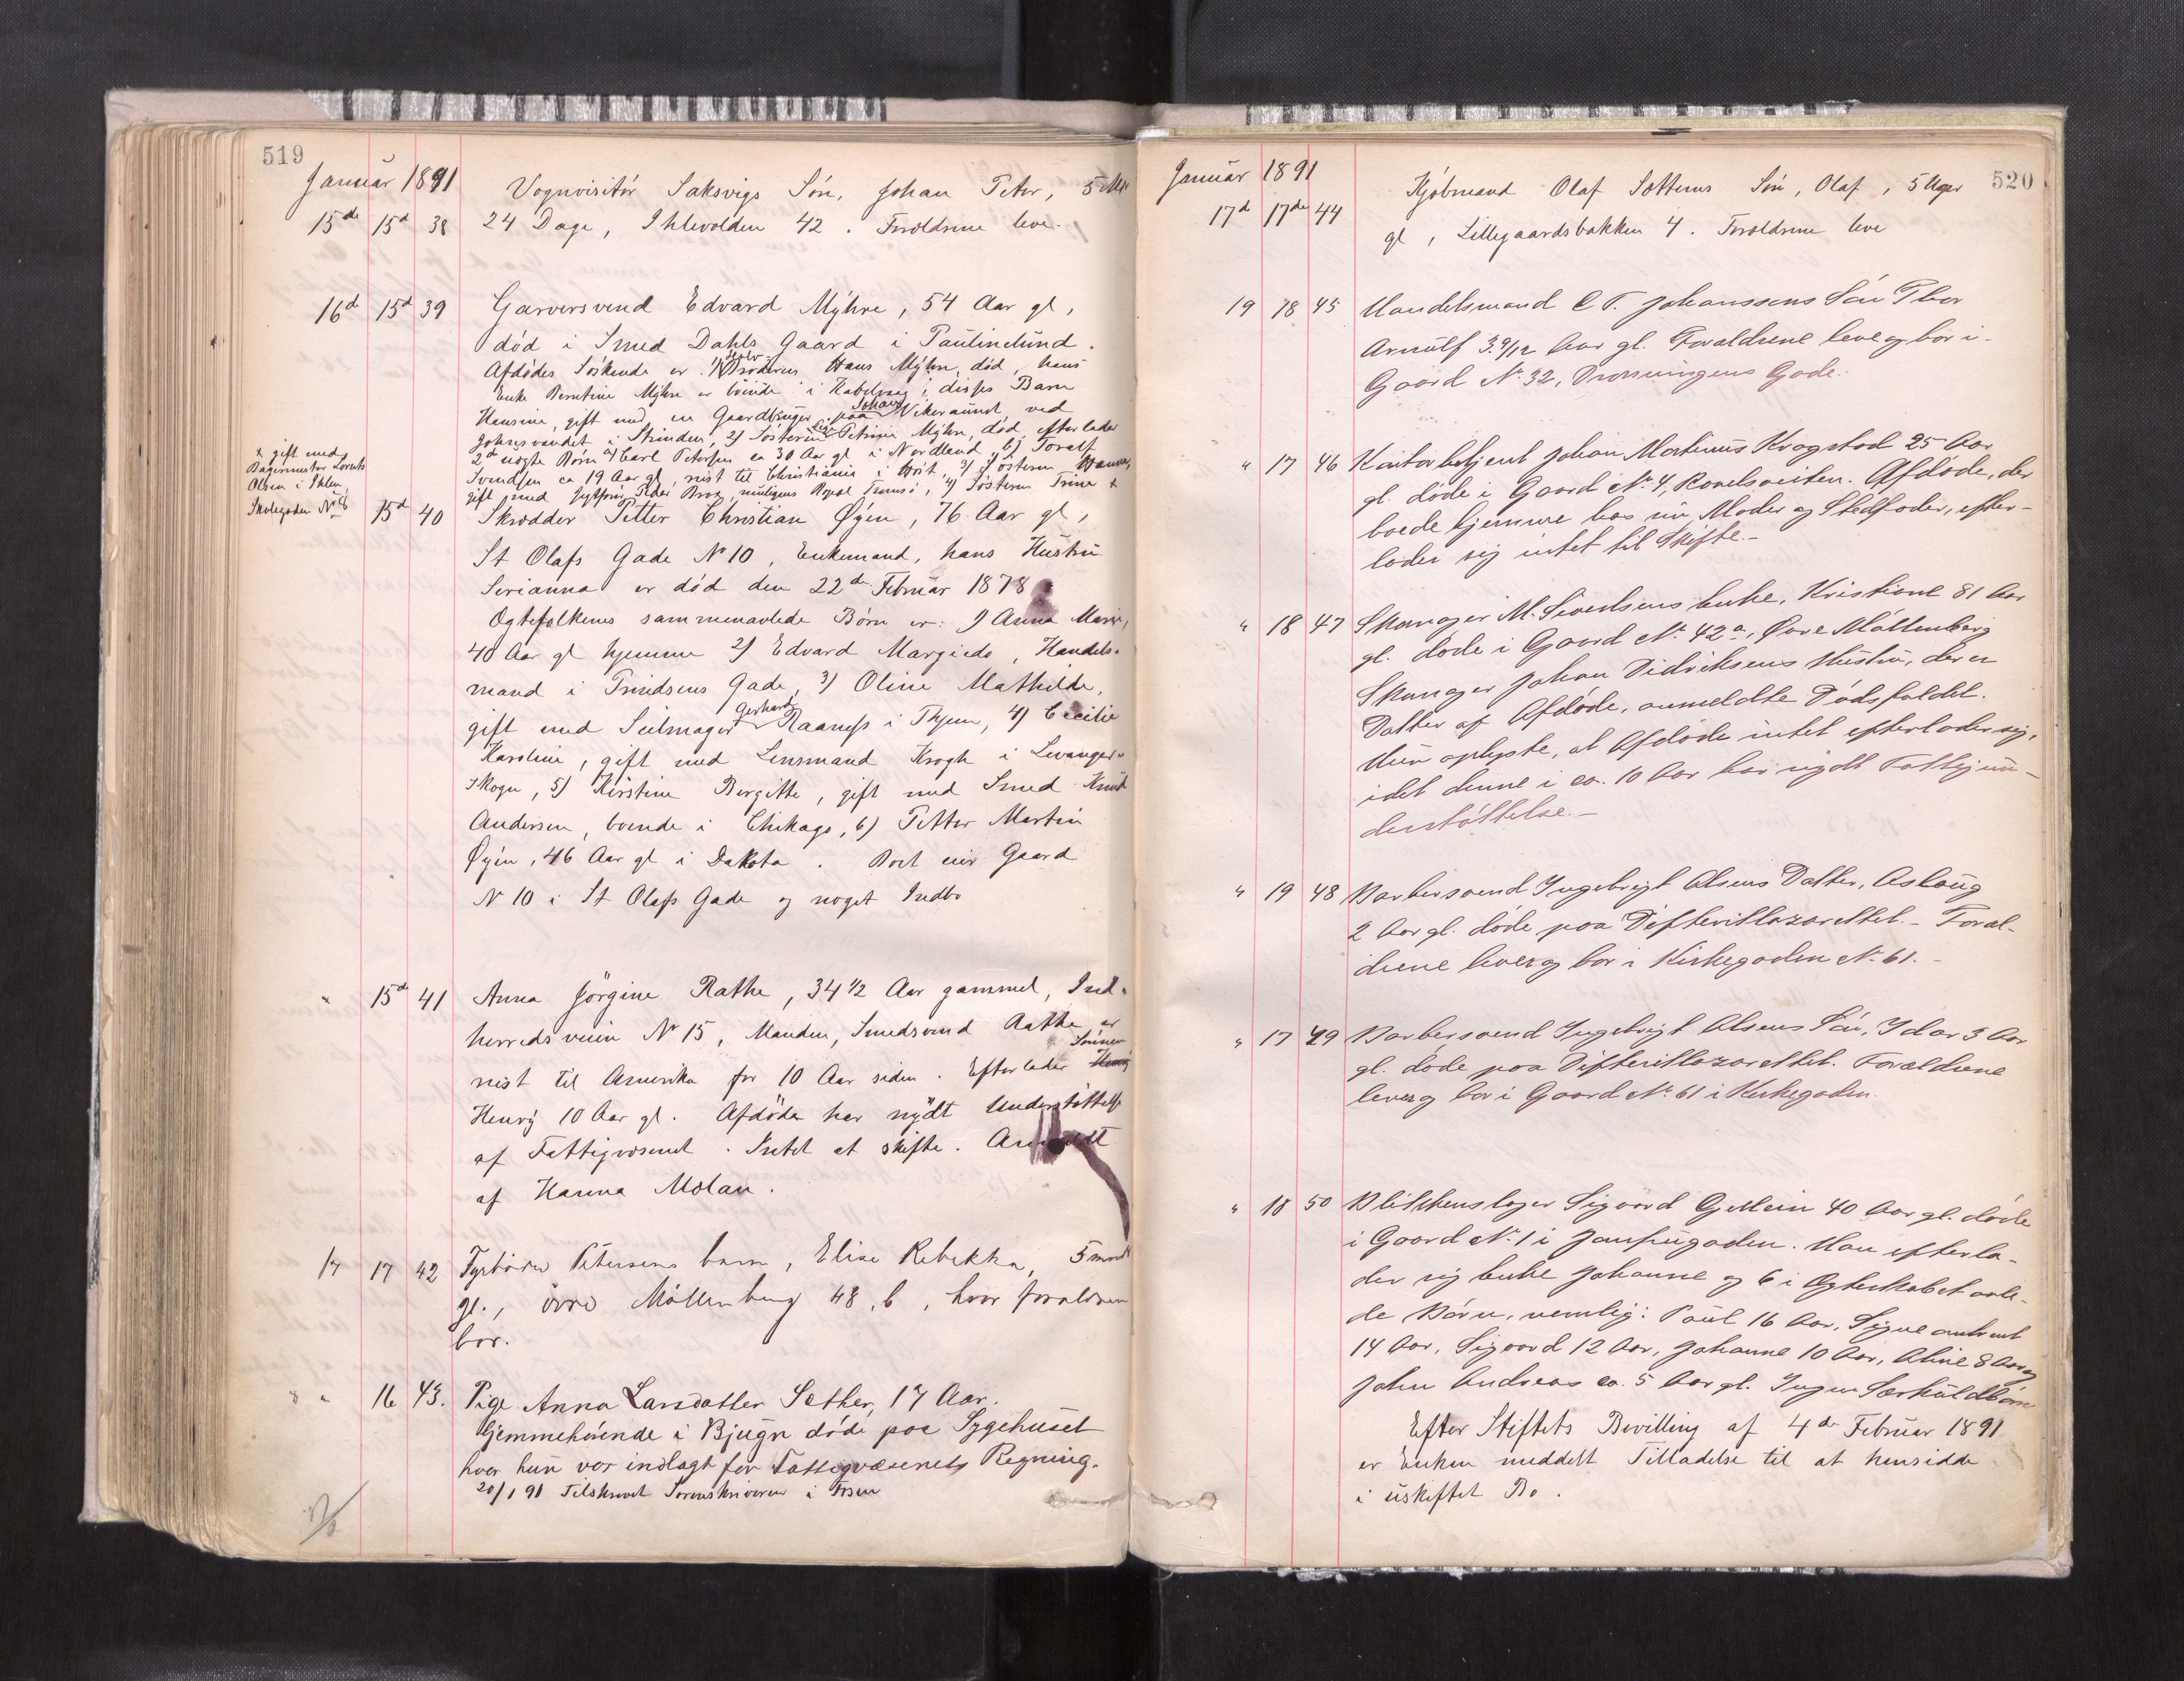 519
Januar 1891
15de 15d 38 Vognvisitør Saksvigs Søn, Johan Peter, 5 Mdr
24 Dage, Ihlevolden 42. Forældrene leve.
16d 15d 39 Garversvend Edvard Myhre, 54 Aar gl,
død i Smed Dahls Gaard i Paulinelund.
Afdødes Søskende er: 1) Halv-Broderen Hans Myhre, død, hans
Enke Berntine Myhre er boende i Kabelvaag, disses Barn
Hansine, gift med en Gaardbruger Johan paa Vikeraunet ved
Jonsvandet i Strinden, 2) Søsteren Petrine Myhre, død, efterlader
2de uægte Børn a) Carl Petersen ca 30 Aar gl i Nordland, b) Toralf
Svendsen ca 19 Aar gl, reist til Christiania i Høst, 3) Søsteren Hanna,
gift med Peder Brox, muligens Bopæl Tromsø, 4) Søsteren Trine x
x gift med
Bagermester Lorents
Olsen i Ihlen,
Skolegaden No 8
15d 40 Skrædder Petter Christian Øyen, 76 Aar gl,
St Olafs Gade No 10, Enkemand, hans Hustru
Serianna er død den 22de Februar 1878
Ægtefolkenes sammenavlede Børn er: 1) Anna Marie,
40 Aar gl hjemme 2) Edvard Margido, Handels-
mand i Prindsens Gade, 3) Oline Mathilde,
gift med Seilmager Gerhard Raanes i Thjem, 4) Cecilie
Karoline, gift med Lensmand Krogh i Levanger-
skogn, 5) Kirstine Bergitte, gift med Smed Knud
Andersen, boende i Chikago, 6) Petter Martin
Øyen, 46 Aar gl i Dakota. Boet eier Gaard
N 10 i St Olafs Gade og noget Indbo
" 15d 41 Anna Jørgine Rathe, 34 1/2 Aar gammel, Ind-
herredsveien No 15, Manden, Smedsvend Rathe er
reist til Amerika for 10 Aar siden. Efterlader Sønnen
Henry 10 Aar gl. Afdøde har nydt Understøttelse
af Fattigvæsenet. Intet at skifte. Anmeldt
af Hanna Molau.
17 17 42 Fyrbøder Petersens barn, Elise Rebekka, 5 mndr
gl., øvre Møllenberg 48, b, hvor forældrene
bor.
" 16 43. Pige Anna Larsdatter Sæther, 17 Aar.
Hjemmehørende i Bjugn døde paa Sygehuset
hvor hun var indlagt for Fattigvæsenets Regning.
20/1 91 Tilskrevet Sorenskriveren i Fosen
520
Januar 1891
17d 17de 44 Kjøbmand Olaf Sætterns Søn, Olaf, 5 Uger
gl, Lillegaardsbakken 4. Forældrene leve
19 18 45 Handelsmand C T. Johanssens Søn Thor
Arnulf 3 9/12 Aar gl. Forældrene leve og bor i
Gaard No 32, Dronningens Gade.
" 17 46 Kontorbetjent Johan Martinus Krogstad 25 Aar
gl. døde i Gaard No 4, Ravelsveiten. Afdøde, der
boede hjemme hos sin Moder og Stedfader, efter-
lader sig intet til Skifte.-
" 18 47 Skomager M. Sivertsens Enke, Kristiane 81 Aar
gl. døde i Gaard No 42a, Øvre Møllenberg
Skomager Johan Didriksens Hustru, der er
Datter af Afdøde, anmeldte Dødsfaldet.
Hun oplyste, at Afdøde intet efterlader sig,
idet denne i ca. 10 Aar har nydt Fattigun-
derstøttelse.-
" 19 48 Barbersvend Ingebrigt Olsens Datter, Aslaug
2 Aar gl. døde paa Difteritlazarettet.- Foræl-
drene lever og bor i Kirkegaden No 61.-
" 17 49 Barbersvend Ingebrigt Olsens Søn, Idar 3 Aar
gl. døde paa Difteritlazarettet. Forældrene
lever og bor i Gaard No 61 i Kirkegaden.
" 18 50 Blikkenslager Sigvard Gjellein 40 Aar gl. døde
i Gaard No 1 i Jomfrugaden. Han efterla-
der sig Enke Johanne og 6 i Ægteskabet avle-
de Børn, nemlig: Paul 16 Aar, Signe omtrent
14 Aar, Sigvard 12 Aar, Johanne 10 Aar, Aline 8 Aar og
John Andreas ca. 5 Aar gl. Ingen Særkuldbørn
Efter Stiftets Bevilling af 4de Februar 1891
er Enken meddelt Tilladelse til at hensidde
i uskiftet Bo.